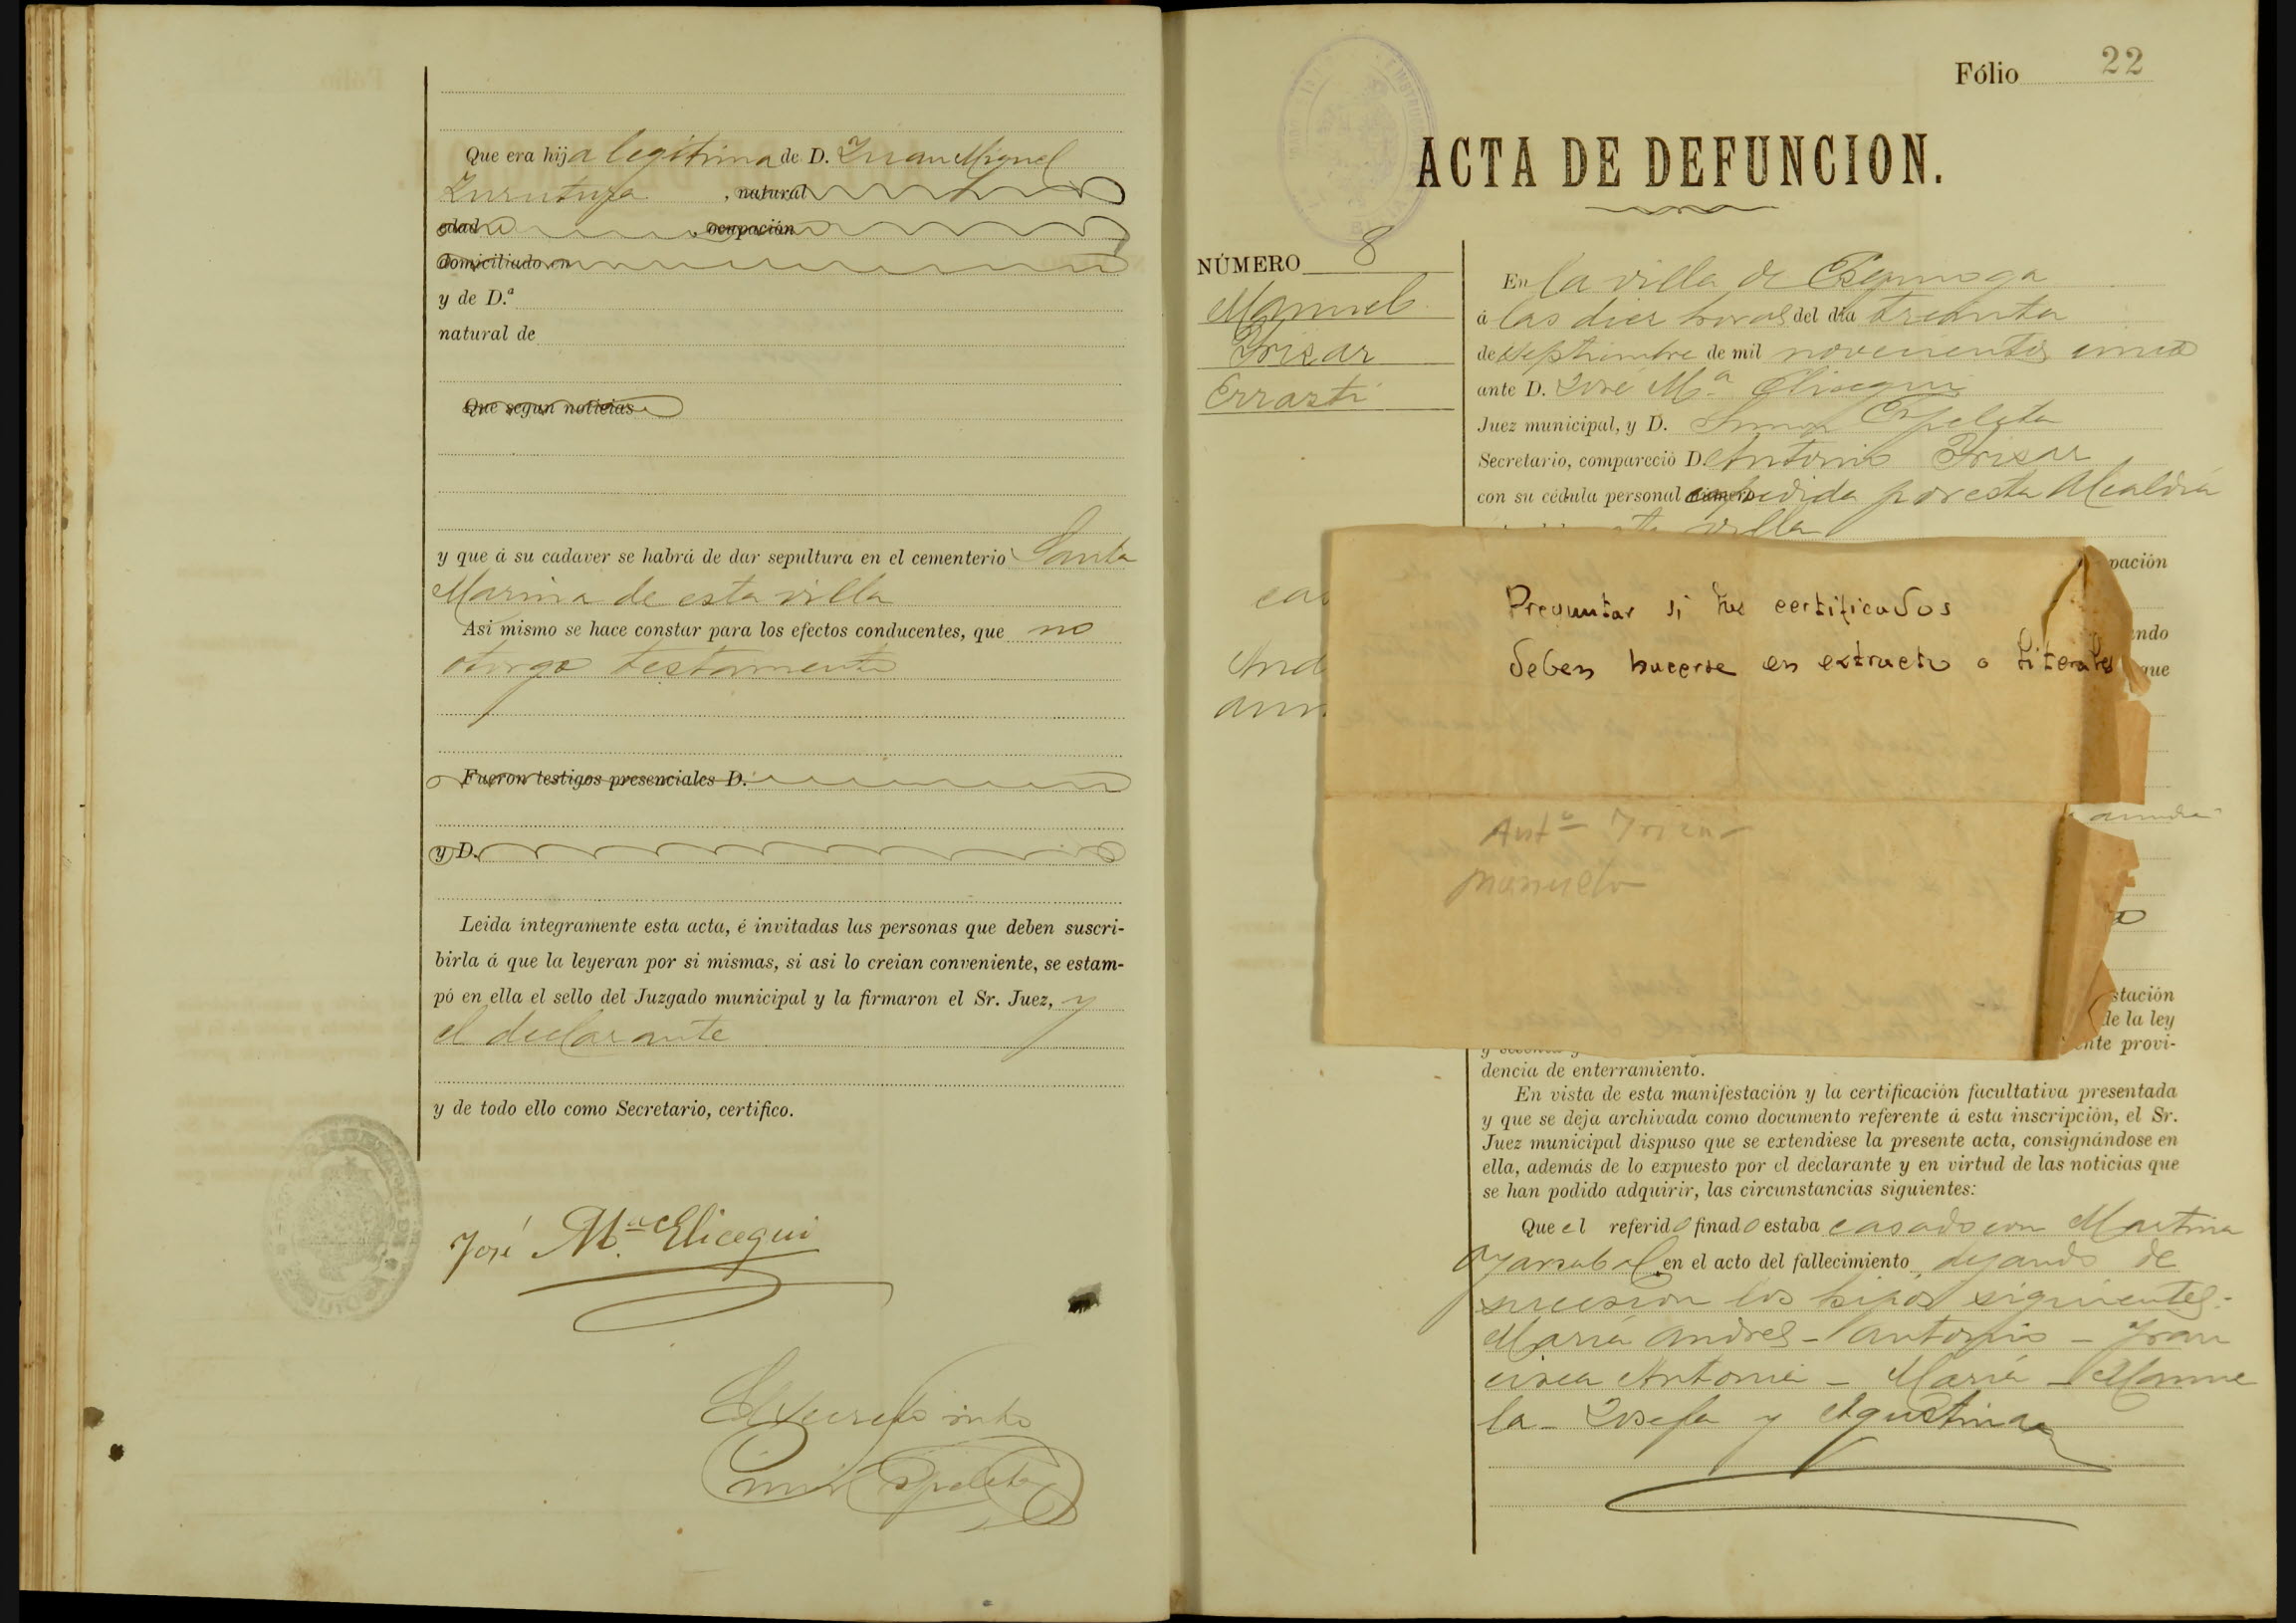 Que era hija legítima de D. Juan Miguel
Zurutuza , natural
edad ocupación
domiciliado en
y de D.ª
natural de
Que segun noticias
y que á su cadaver se habrá de dar sepultura en el cementerio Santa
Marina de esta villa
Asi mismo se hace constar para los efectos conducentes, que no
otorgo testamento
Fueron testigos presenciales D.
y D.
Leida integramente esta acta, é invitadas las personas que deben suscri-
birla á que la leyeran por si mismas, si asi lo creian conveniente, se estam-
pó en ella el sello del Juzgado municipal y la firmaron el Sr. Juez, y
el declarante
y de todo ello como Secretario, certifico.
José M.ª Elicegui
Espeleta
Fólio 22
ACTA DE DEFUNCION.
NÚMERO 8
Manuel
Yrizar
Errasti
En la villa de
á las diez horas del dia treinta
de Septiembre de mil novecientos cinco
ante D. José M.ª Elicegui
Juez municipal, y D. Simon Espeleta
Secretario, compareció D. Antonio Yrizar
con su cédula personal expedida por esta Alcaldia
villa
pación
Preguntar si los certificados
deben hacerse en extracto o literales
Antº Irizar
Manuela
ando
que
stación
de la ley
ente provi-
dencia de enterramiento.
En vista de esta manifestación y la certificación facultativa presentada
y que se deja archivada como documento referente á esta inscripción, el Sr.
Juez municipal dispuso que se extendiese la presente acta, consignándose en
ella, además de lo expuesto por el declarante y en virtud de las noticias que
se han podido adquirir, las circunstancias siguientes:
Que el referido finado estaba casado con Martina
Oyarzabal en el acto del fallecimiento, dejando de
sucesion los hijos siguientes-
Maria Andres - Antonio - Fran
cisca Antonia - Maria - Manue
la - Josefa y Agustina